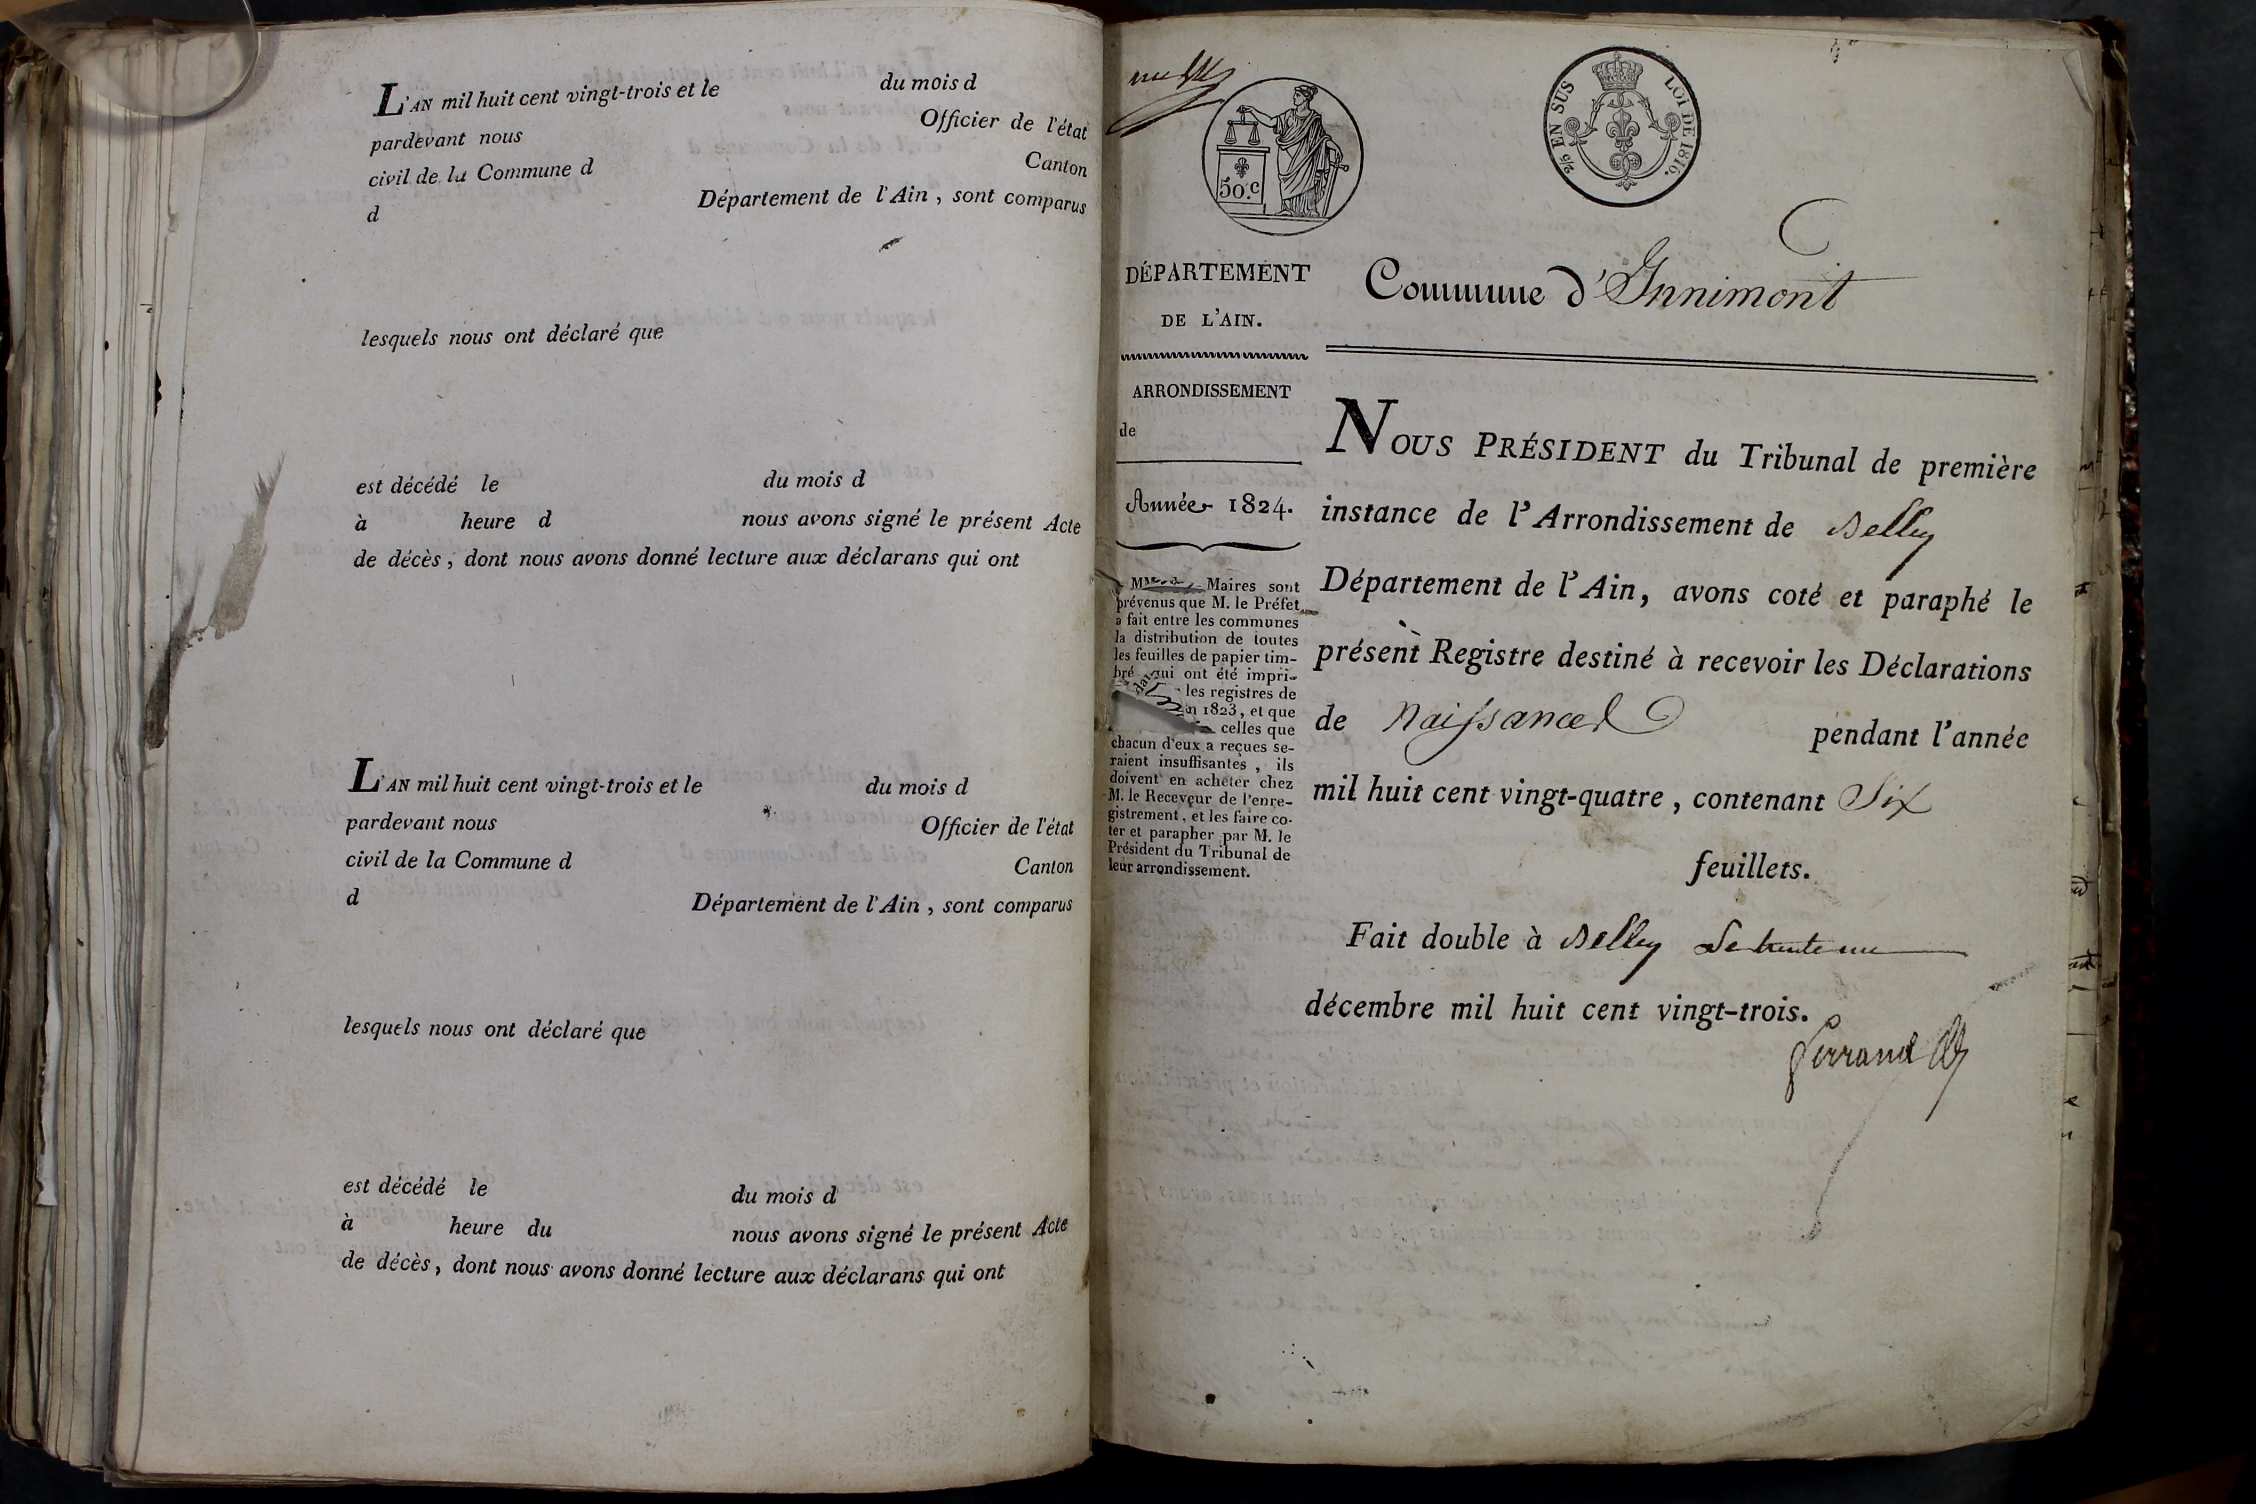 L'AN mil huit cent vingt-trois et le du mois d
pardevant nous Officier de l'état
civil de la Commune d Canton
d Département de l'Ain, sont comparus
lesquels nous ont déclaré que
est décédé le du mois d
à heure d nous avons signé le présent Acte
de décès, dont nous avons donné lecture aux déclarans qui ont
L'AN mil huit cent vingt-trois et le du mois d
pardevant nous Officier de l'état
civil de la Commune d Canton
d Département de l'Ain, sont comparus
lesquels nous ont déclaré que
est décédé le du mois d
à heure du nous avons signé le présent Acte
de décès, dont nous avons donné lecture aux déclarans qui ont
50.c
2/5 EN SUS LOI DE 1816.
DÉPARTEMENT
DE L'AIN.
ARRONDISSEMENT
de
Année 1824.
Maires sont
prévenus que M. le Préfet
a fait entre les communes
la distribution de toutes
les feuilles de papier tim-
bré qui ont été impri-
les registres de
1823, et que
celles que
chacun d'eux a reçues se-
raient insuffisantes, ils
doivent en acheter chez
M. le Receveur de l'enre-
gistrement, et les faire co-
ter et parapher par M. le
Président du Tribunal de
leur arrondissement.
Commune d'Innimont
NOUS PRÉSIDENT du Tribunal de première
instance de l'Arrondissement de Belley
Département de l'Ain, avons coté et paraphé le
présent Registre destiné à recevoir les Déclarations
de Naissances pendant l'année
mil huit cent vingt-quatre, contenant Six
feuillets.
Fait double à Belley Le trente un
décembre mil huit cent vingt-trois.
Ferrand